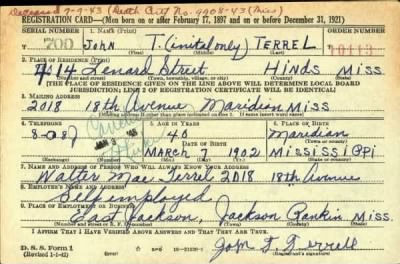 Deceased 7-9-43 (Death Cert No. 9908-43 (Miss)
REGISTRATION CARD—(Men born on or after February 17, 1897 and on or before December 31, 1921)
SERIAL NUMBER 1. NAME (Print) ORDER NUMBER
T 700 John T. (initial only) TERREL 10113
(First) (Middle) (Last)
2. PLACE OF RESIDENCE (Print)
Street HINDS MISS
(Number and street) (Town, township, village, or city) (County) (State)
[THE PLACE OF RESIDENCE GIVEN ON THE LINE ABOVE WILL DETERMINE LOCAL BOARD
JURISDICTION; LINE 2 OF REGISTRATION CERTIFICATE WILL BE IDENTICAL]
3. MAILING ADDRESS
2018 18th Avenue Maridion MISS
4. TELEPHONE 5. AGE IN YEARS 6. PLACE OF BIRTH
40 Maridian
DATE OF BIRTH (Town or county)
MARCH 7 1902 MISSISSIPPI
(Exchange) (Number) (Mo.) (Day) (Yr.) (State or country)
7. NAME AND ADDRESS OF PERSON WHO WILL ALWAYS KNOW YOUR ADDRESS
Walter Mac Terrel 2018 18th Avenue
8. EMPLOYER'S NAME AND ADDRESS
Self employed
9. PLACE OF EMPLOYMENT OR BUSINESS
East Jackson, Jackson Rankin, Miss.
(Number and street or R. F. D. number) (Town) (County) (State)
I AFFIRM THAT I HAVE VERIFIED ABOVE ANSWERS AND THAT THEY ARE TRUE.
D. S. S. Form 1
(Revised 1-1-42)
John T. Terrell